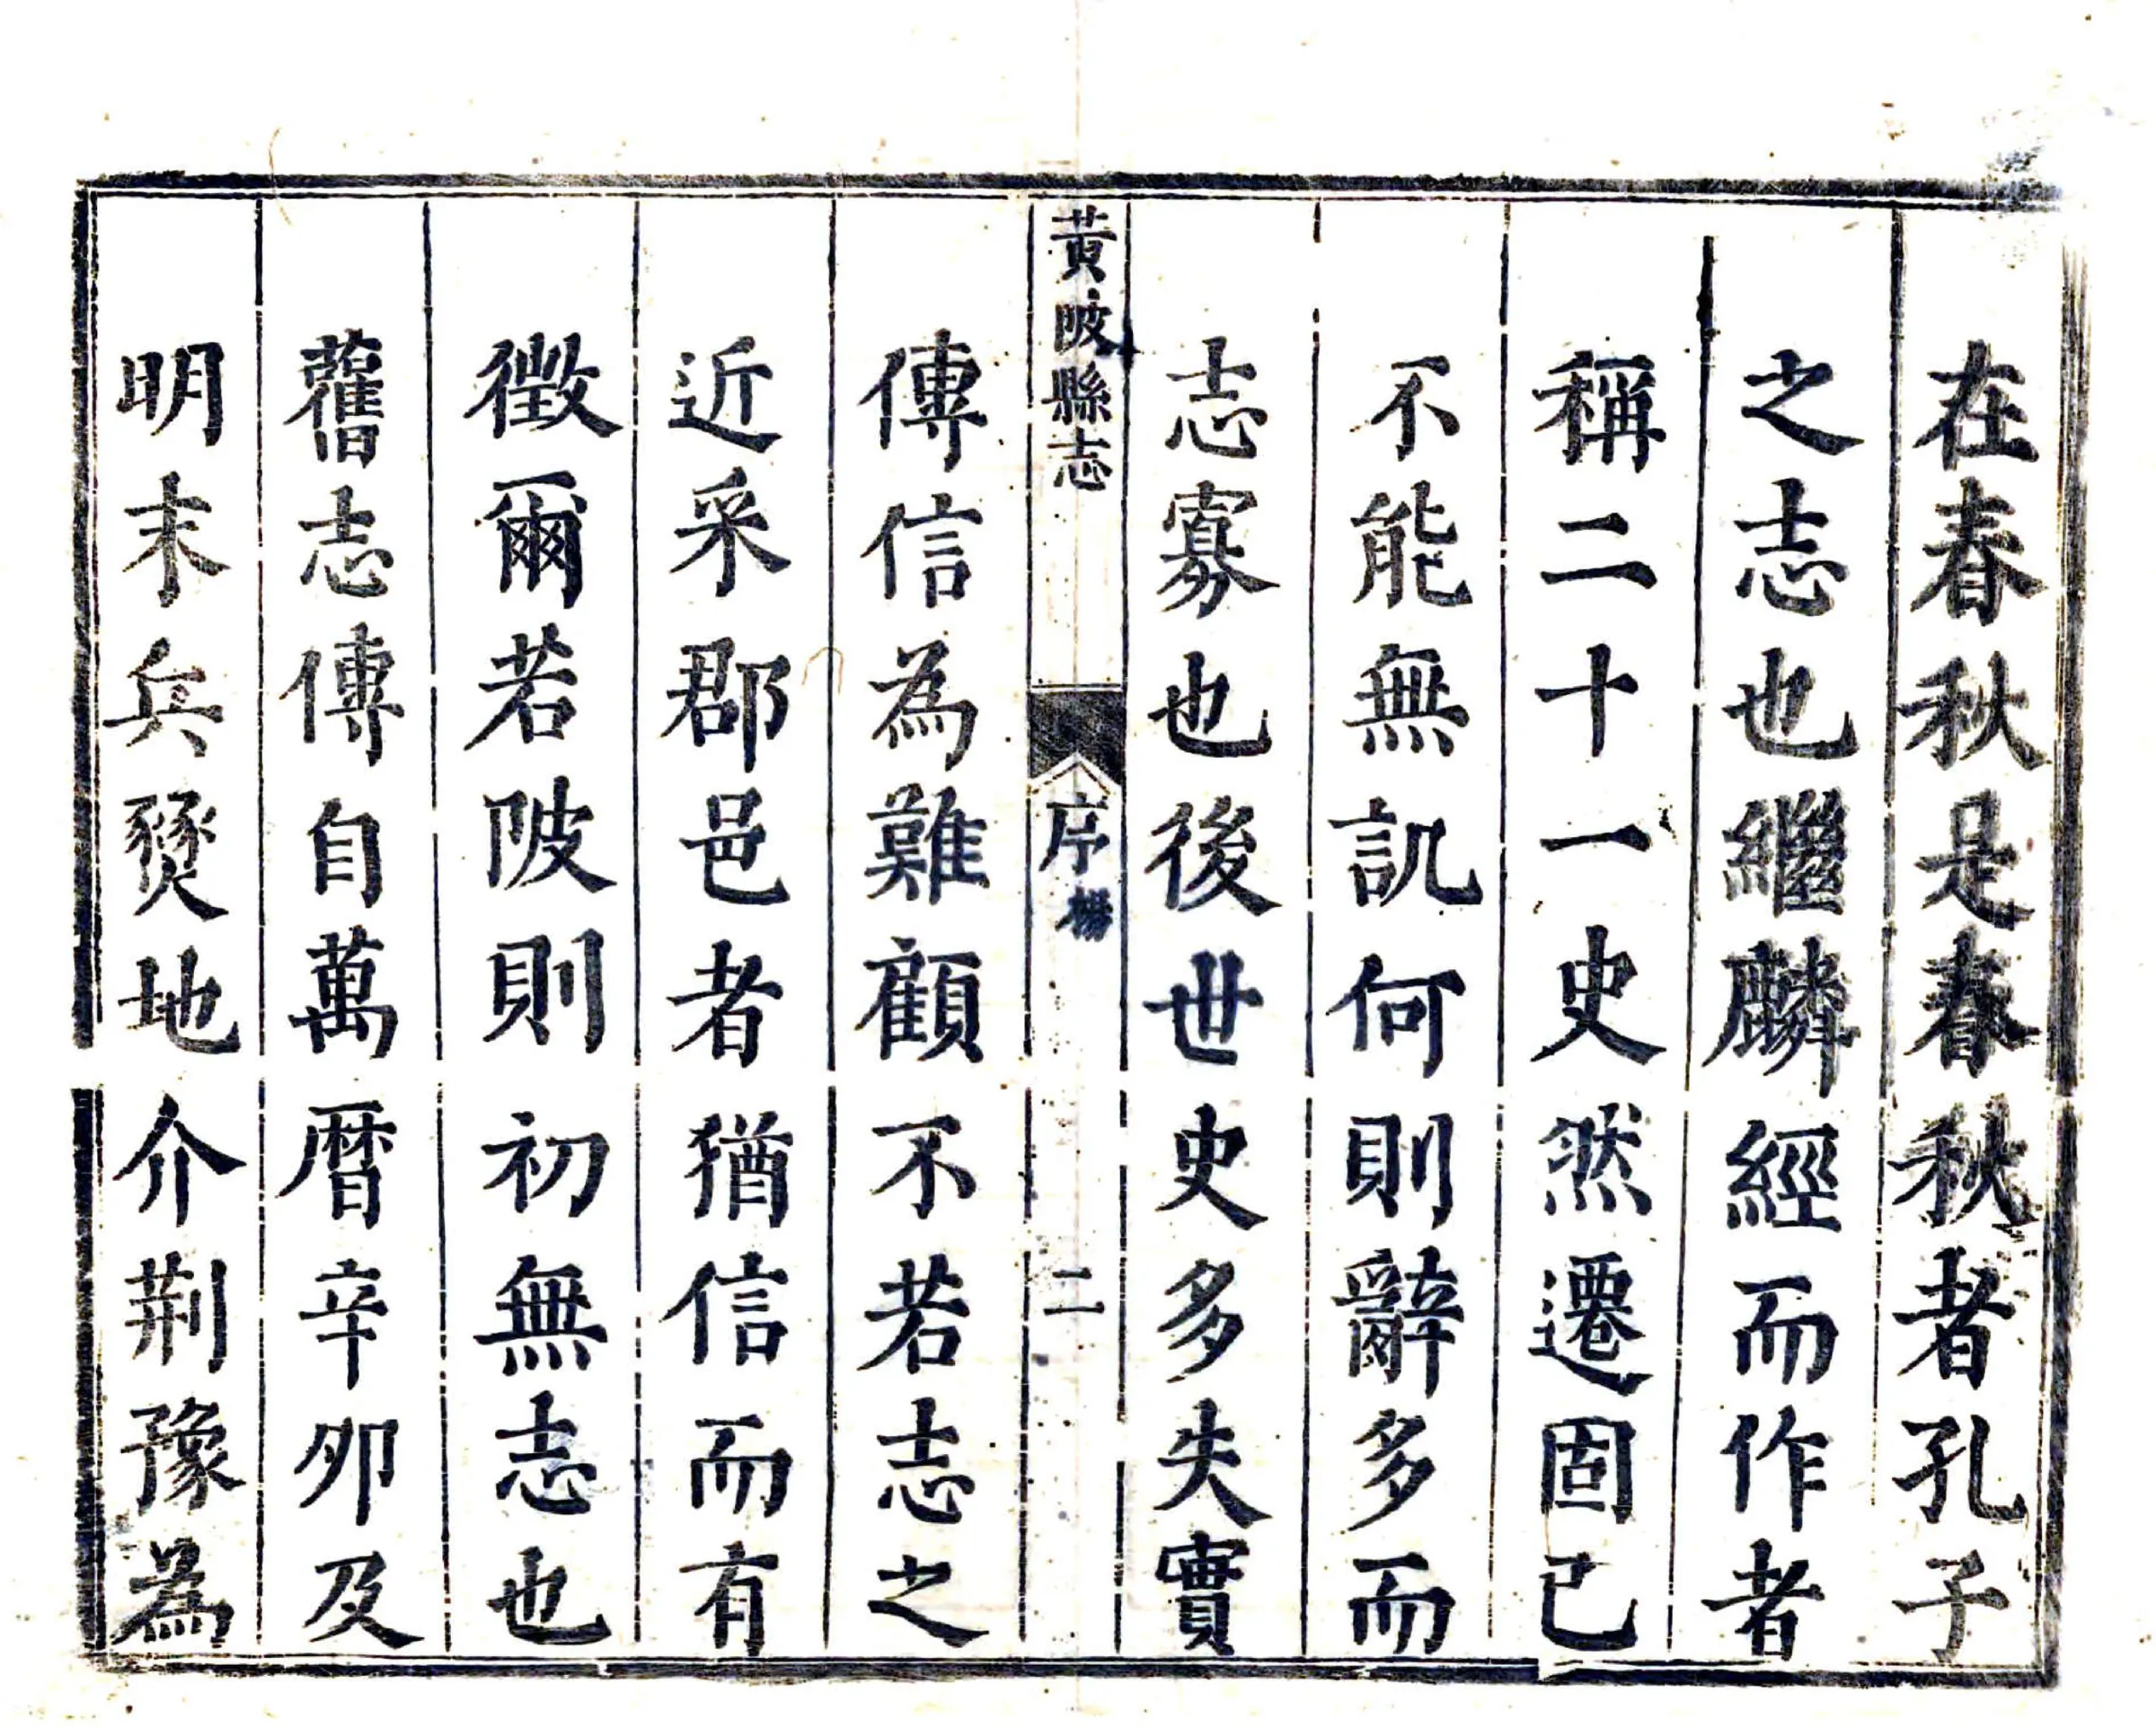 在春秋是春秋者孔子
之志也繼麟經而作者
稱二十一史然遷固已
不能無訊何則辭多而
志寡也後世史多失實
黃陂縣志
序楊
二
傳信為難顧不若志之
近采郡邑者猶信而有
徵爾若陂則初無志也
舊志傳自萬曆辛夘及
明末兵燹地介荆豫為